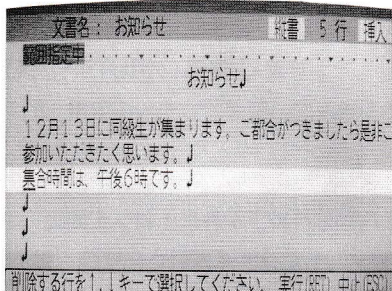 文書名： お知らせ 縦書 5行 挿入
範囲指定中
お知らせ↲
↲
12月13日に同級生が集まります。ご都合がつきましたら是非ご
参加いただきたく思います。↲
集合時間は、午後6時です。↲
↲
↲
↲
削除する行を↑,↓キーで選択してください。 実行(RET) 中止(ESC)